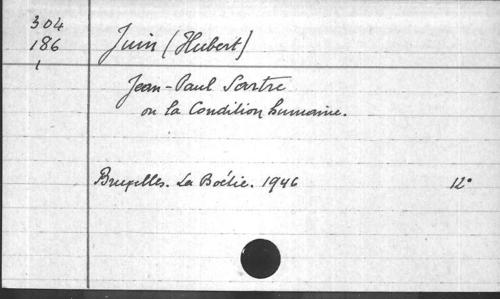 304
186
1
Juin (Hubert)
Jean-Paul Sartre
ou la Condition humaine.
Bruxelles. La Boétie. 1946 12°